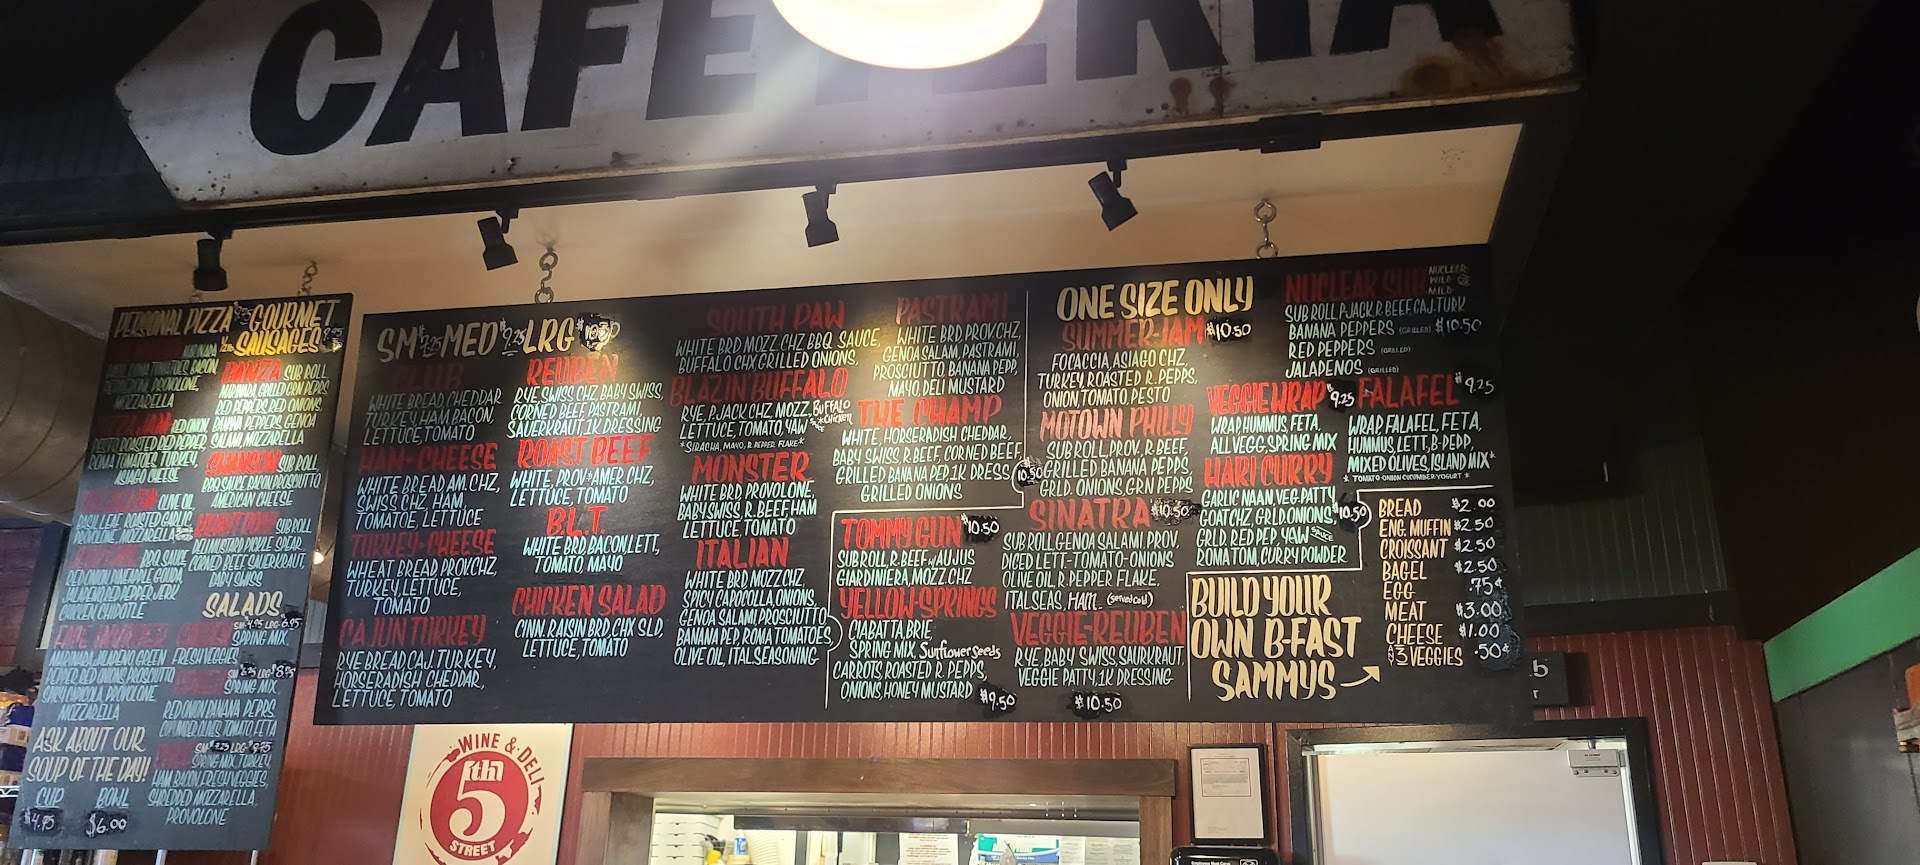 CAFETERIA
PERSONAL PIZZA
GOURMET
SAUSAGES
DANZA SUB ROLL
MARINARA GRILLED GRN PEPPS
RED PEPPERS, RED ONIONS,
BANANA PEPPERS, GENOA
SALAMI, MOZZARELLA
SWANSON SUB ROLL,
BBQ SAUCE, BACON, PROSCIUTTO
AMERICAN CHEESE
SUB ROLL
DELI MUSTARD, PICKLE SPEAR,
CORNED BEEF, SAUERKRAUT,
BABY SWISS
MARINARA
PEPPERONI, PROVOLONE,
MOZZARELLA
RED ONION,
PESTO, ROASTED RED PEPPER
ROMA TOMATOES, TURKEY,
ASIAGO CHEESE
OLIVE OIL,
BASIL LEAF, ROASTED GARLIC,
PROVOLONE, MOZZARELLA
BBQ SAUCE
RED ONION, PINEAPPLE, GOUDA,
JALAPENO, RED PEPPER, JERK
CHICKEN, CHIPOTLE
MARINARA, JALAPENO, GREEN
PEPPER, RED ONIONS, PROSCIUTTO
SPICY CAPICOLA, PROVOLONE,
MOZZARELLA
SALADS
SM $4.95 LRG $6.95
SPRING MIX,
FRESH VEGGIES
LRG $8.95
SPRING MIX,
RED ONION, BANANA PEPPS,
CUCUMBER, OLIVES, TOMATO, FETA
LRG $9.75
SPRING MIX, TURKEY,
HAM, BACON, FRESH VEGGIES,
SHREDDED MOZZARELLA,
PROVOLONE
ASK ABOUT OUR
SOUP OF THE DAY!
CUP BOWL
$4.95 $6.00
SM $7.25 MED $9.25 LRG
CLUB
WHITE BREAD, CHEDDAR
TURKEY, HAM, BACON,
LETTUCE, TOMATO
HAM & CHEESE
WHITE BREAD, AM CHZ,
SWISS CHZ, HAM,
TOMATOE, LETTUCE
TURKEY & CHEESE
WHEAT BREAD, PROV. CHZ,
TURKEY, LETTUCE,
TOMATO
CAJUN TURKEY
RYE BREAD, CAJ. TURKEY,
HORSERADISH CHEDDAR,
LETTUCE, TOMATO
REUBEN
RYE, SWISS CHZ, BABY SWISS,
CORNED BEEF, PASTRAMI,
SAUERKRAUT, 1K DRESSING
ROAST BEEF
WHITE, PROV & AMER CHZ,
LETTUCE, TOMATO
B.L.T.
WHITE BRD, BACON, LETT,
TOMATO, MAYO
CHICKEN SALAD
CINN. RAISIN BRD, CHX SLD,
LETTUCE, TOMATO
SOUTH PAW
WHITE BRD, MOZZ CHZ, B.B.Q. SAUCE,
BUFFALO CHX, GRILLED ONIONS,
BLAZIN' BUFFALO
RYE, P. JACK CHZ, MOZZ, BUFFALO CHICKEN
LETTUCE, TOMATO, YAW SAUCE*
*SIRACHA, MAYO, R. PEPPER, FLAKE*
MONSTER
WHITE BRD, PROVOLONE,
BABY SWISS, R. BEEF, HAM
LETTUCE, TOMATO
ITALIAN
WHITE BRD, MOZZ CHZ,
SPICY CAPOCOLLA, ONIONS,
GENOA SALAMI, PROSCIUTTO,
BANANA PEP, ROMA TOMATOES,
OLIVE OIL, ITAL. SEASONING
PASTRAMI
WHITE BRD, PROV CHZ,
GENOA SALAM, PASTRAMI,
PROSCIUTTO, BANANA PEPP,
MAYO, DELI MUSTARD
THE CHAMP
WHITE, HORSERADISH CHEDDAR,
BABY SWISS, R. BEEF, CORNED BEEF,
GRILLED BANANA PEP, 1K DRESS
GRILLED ONIONS
10.50
TOMMY GUN $10.50
SUB ROLL, R. BEEF W/ AU JUS
GIARDINIERA, MOZZ. CHZ
YELLOW-SPRINGS
CIABATTA, BRIE,
SPRING MIX, Sunflower Seeds
CARROTS, ROASTED R. PEPPS,
ONIONS, HONEY MUSTARD $9.50
ONE SIZE ONLY
SUMMER-JAM $10.50
FOCACCIA, ASIAGO CHZ,
TURKEY, ROASTED R. PEPPS,
ONION, TOMATO, PESTO
MOTOWN PHILLY
SUB ROLL, PROV., R. BEEF,
GRILLED BANANA PEPPS,
GRLD. ONIONS, GRN PEPPS
SINATRA $10.50
SUB ROLL, GENOA SALAMI, PROV,
DICED LETT-TOMATO-ONIONS
OLIVE OIL, R. PEPPER FLAKE,
ITAL SEAS, HAM (served cold)
VEGGIE-REUBEN
RYE, BABY SWISS, SAURKRAUT,
VEGGIE PATTY, 1K DRESSING
$10.50
NUCLEAR SUB NUCLEAR
WILD OR
MILD
SUB ROLL, P. JACK, R. BEEF, CAJ. TURK
BANANA PEPPERS (GRILLED) $10.50
RED PEPPERS (GRILLED)
JALAPENOS (GRILLED)
VEGGIE WRAP $9.25
WRAP, HUMMUS, FETA,
ALL VEGG, SPRING MIX
FALAFEL $9.25
WRAP, FALAFEL, FETA,
HUMMUS, LETT, B-PEPP,
MIXED OLIVES, ISLAND MIX*
* TOMATO ONION CUCUMBER YOGURT *
HARI CURRY
GARLIC NAAN, VEG. PATTY,
GOAT CHZ, GRLD. ONIONS, $10.50
GRLD. RED PEP, YAW SAUCE
ROMA TOM, CURRY POWDER
BUILD YOUR
OWN B-FAST
SAMMYS
BREAD $2.00
ENG. MUFFIN $2.50
CROISSANT $2.50
BAGEL $2.50
EGG .75¢
MEAT $3.00
CHEESE $1.00
ANY 3 VEGGIES .50¢
WINE & DELI
5th
STREET